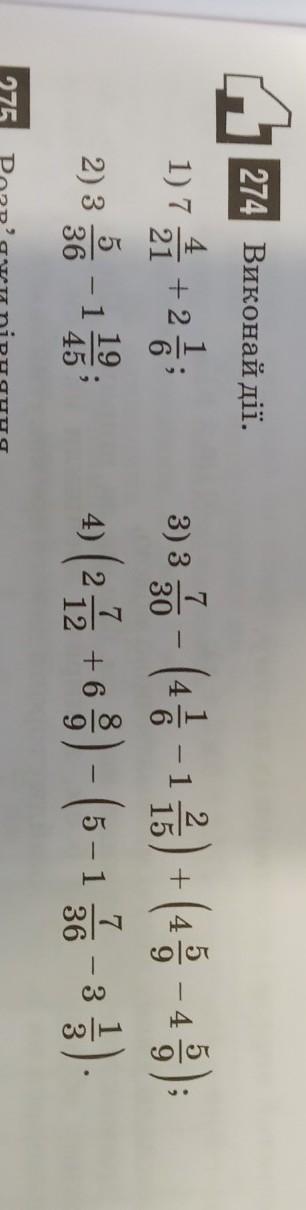 274 Виконай дії.
1) 7 4/21 + 2 1/6;
2) 3 5/36 − 1 19/45;
3) 3 7/30 − (4 1/6 − 1 2/15) + (4 5/9 − 4 5/9);
4) (2 7/12 + 6 8/9) − (5 − 1 7/36 − 3 1/3).
275 Розв'яжи рівняння